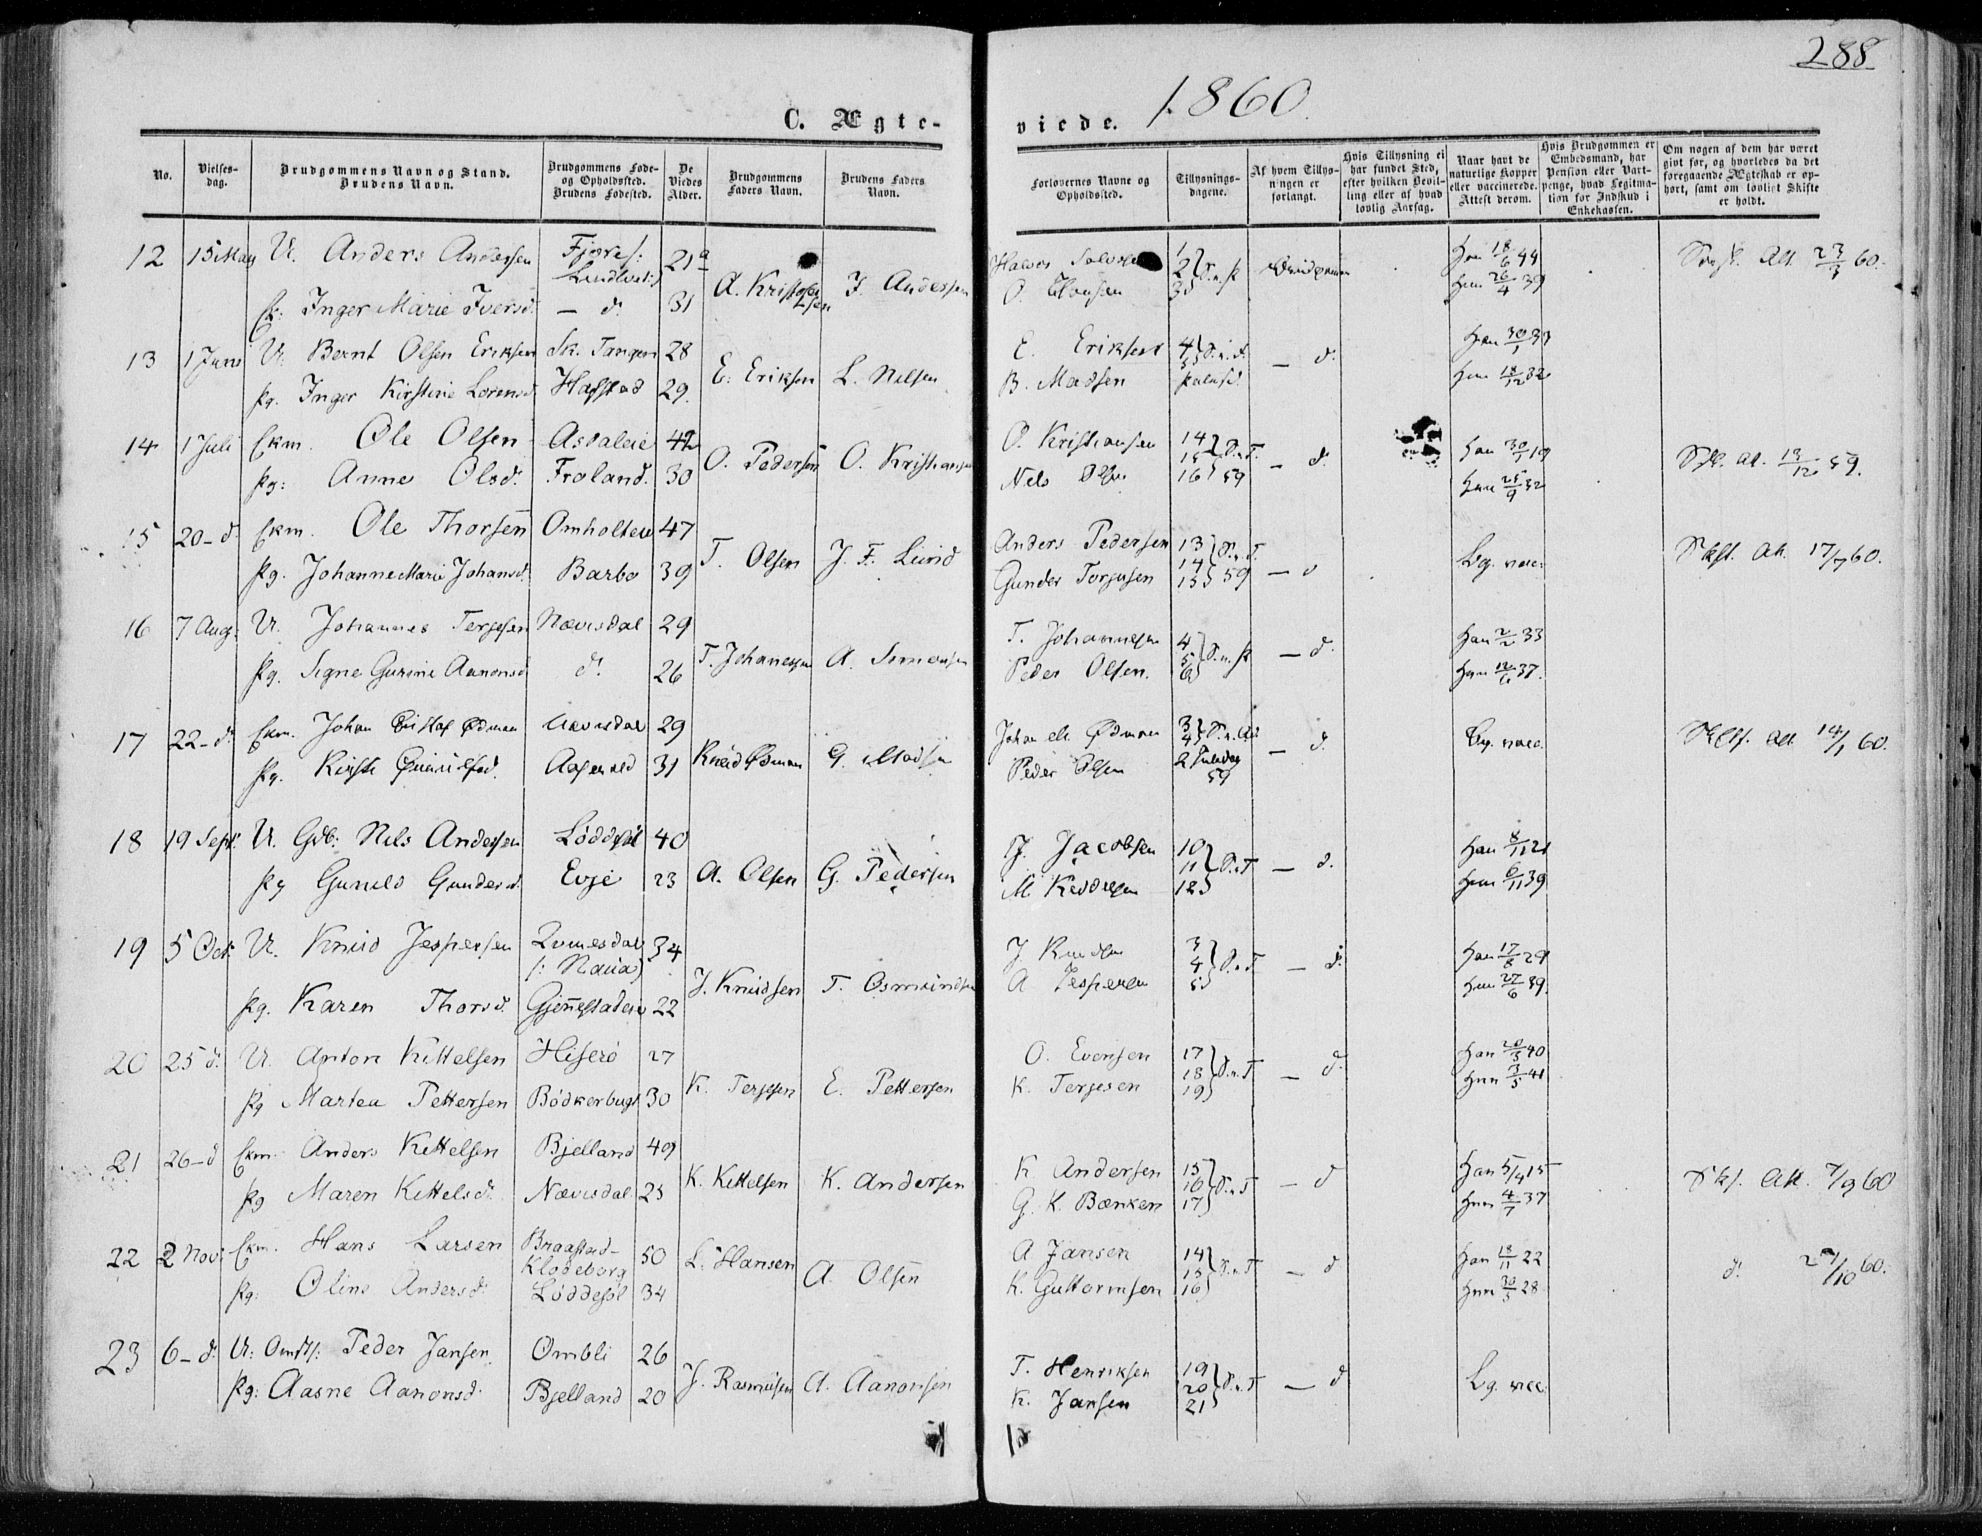 288
C. Ægte-
viede. 1860.
No.
Vielses-
dag.
Brudgommens Navn og Stand.
Brudens Navn.
Brudgommens Føde-
og Opholdssted.
Brudens Fødested.
De
Viedes
Alder.
Brudgommens
Faders Navn.
Brudens Faders
Navn.
Forlovernes Navne og
Opholdssted.
Tillysnings-
dagene.
Af hvem Tillys-
ningen er
forlangt.
Hvis Tillysning ei
har fundet Sted,
efter hvilken Bevil-
ling eller af hvad
lovlig Aarsag.
Naar havt de
naturlige Kopper
eller vaccinerede.
Attest derom.
Hvis Brudgommen er
Embedsmand, har
Pension eller Vart-
penge, hvad Legitima-
tion for Indskud i
Enkekassen.
Om nogen af dem har været
givt før, og hvorledes da det
foregaaende Ægteskab er op-
hørt, samt om lovligt Skifte
er holdt.
12 15 May U. Anders Andersen Fjære 21 A. Kristofersen J. Andersen Halvor 1 2 3 Brudgommen Han 18/6 44 Att. 23/3 60.
Inger Marie Iversd. — d. 31 O. Hansen Hun 26/4 39
13 1 Juni U. Bernt Olsen Eriksen Sk. Tangen 28 E. Eriksen L. Nilsen E. Eriksen 4 5 — d. Han 30/1 33
Pg. Inger Kirstine Lorensd. Hafstad 29. B. Madsen Hun 18/12 32
14 1 Juli Ekm. Ole Olsen Asdaleie 42 O. Pedersen O. Kristiansen O. Kristiansen 14 15 16 59 — d. Han 30/1 19 Att. 13/12 59.
Pg: Anne Olsd. Froland. 30 Nels Olsen Hun 25/9 32
15 20 - d. Ekm. Ole Thorsen Omholteie 47 T. Olsen J. F. Lund Anders Pedersen 13 14 15 59 — d Bg. vacc. Skft. Att. 17/7 60.
Pg. Johanne Marie Johansd. Barbo 39 Gunder Torjusen
16 7 Aug. U. Johannes Terjesen Nævisdal 29 T. Johannesen A. Simonsen T. Johannesen 4 5 6 — d. Han 2/2 33
Pg. Signe Gurine Aanonsd. d. 26 Peder Olsen. Hun 12/6 37.
17 22 - d. Ekm. Johan Gustaf Ødman Nævisdal 29 Knud Ødman G. Madsen Johan Ødman 3 4 2 Juledag 59 — d. Bg. vacc. Att. 14/1 60.
Pg. Kirsti 31 Peder Olsen
18 19 Sept. U. Gdb: Nils Andersen Løddesøl 40 A. Olsen G. Pedersen J. Jacobsen 10 11 12 — d. Han 8/11 21
Pg Gunild Gundersd. Evje 23 M. Hun 6/11 39
19 5 Oct. U. Knud Jespersen Romesdal 34 J. Knudsen T. Osmundsen J. Knudsen 3 4 5 — d. Han 17/8 29
Pg. Karen Thorsd. Gjennestadeie 22 A Jespersen Hun 27/6 39.
20 25 d. U. Anton Kittelsen Hiserö 27 K. Terjesen E. Pettersen O. Evensen 17 18 19 — d. Han 20/5 40
Pg Martea Pettersen Bödkerbugt 30 K. Terjesen Hun 3/5 41
21 26 - d Ekm. Anders Kittelsen Bjelland 49 K. Kittelsen K. Andersen K Andersen 15 16 17 — d Han 5/4 15 Skf. Att. 7/9 60
Pg Maren Kittelsd. Nævisdal 23 G. K. Bænken Hun 4/7 37
22 2 Nov: Ekm. Hans Larsen Braastad-
Klodeborg 50 L. Hansen A. Olsen A Jansen 14 15 16 — d Han 18/11 22 d. 27/10 60.
Pg: Oline Andersd. Løddesøl 34 K. Guttormsen Hun 30/5 28
23 6 - d. U: Peder Jansen Ombli 26 J. Rasmusen A. Aanonsen T. Henriksen 19 20 21 — d Bg. vacc.
Pg: Aasne Aanonsd. Bjelland 20 K. Jansen